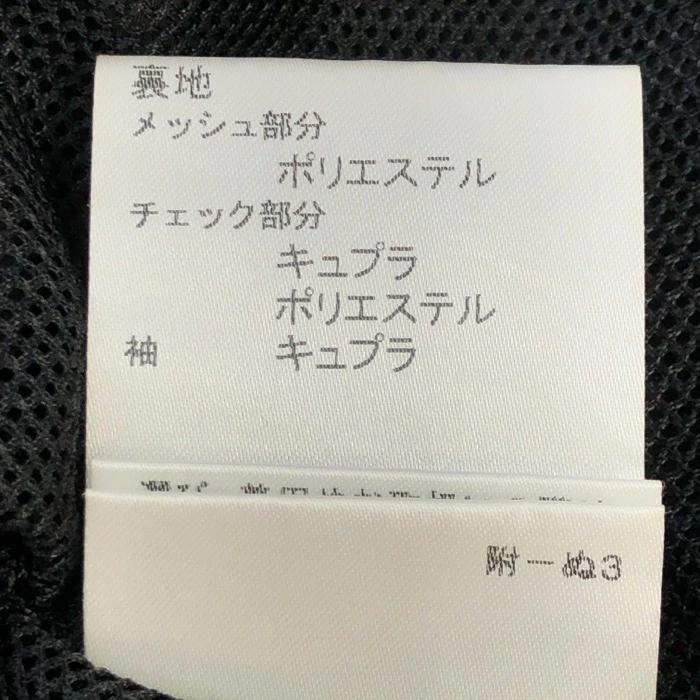 裏地
メッシュ部分
ポリエステル
チェック部分
キュプラ
ポリエステル
袖 キュプラ
附ーぬ3